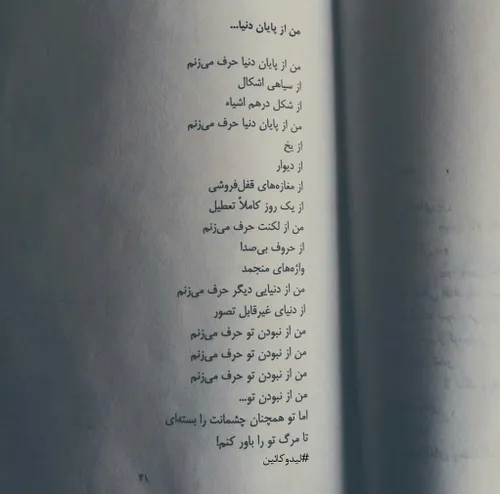 من از پایان دنیا...
من از پایان دنیا حرف می‌زنم
از سیاهی اشکال
از شکل درهم اشیاء
من از پایان دنیا حرف می‌زنم
از یخ
از دیوار
از مغازه‌های قفل‌فروشی
از یک روز کاملاً تعطیل
من از لکنت حرف می‌زنم
از حروف بی‌صدا
واژه‌های منجمد
من از دنیایی دیگر حرف می‌زنم
از دنیای غیرقابل تصور
من از نبودن تو حرف می‌زنم
من از نبودن تو حرف می‌زنم
من از نبودن تو حرف می‌زنم
من از نبودن تو...
اما تو همچنان چشمانت را بسته‌ای
تا مرگ تو را باور کنم!
#لیدوکائین
۲۱